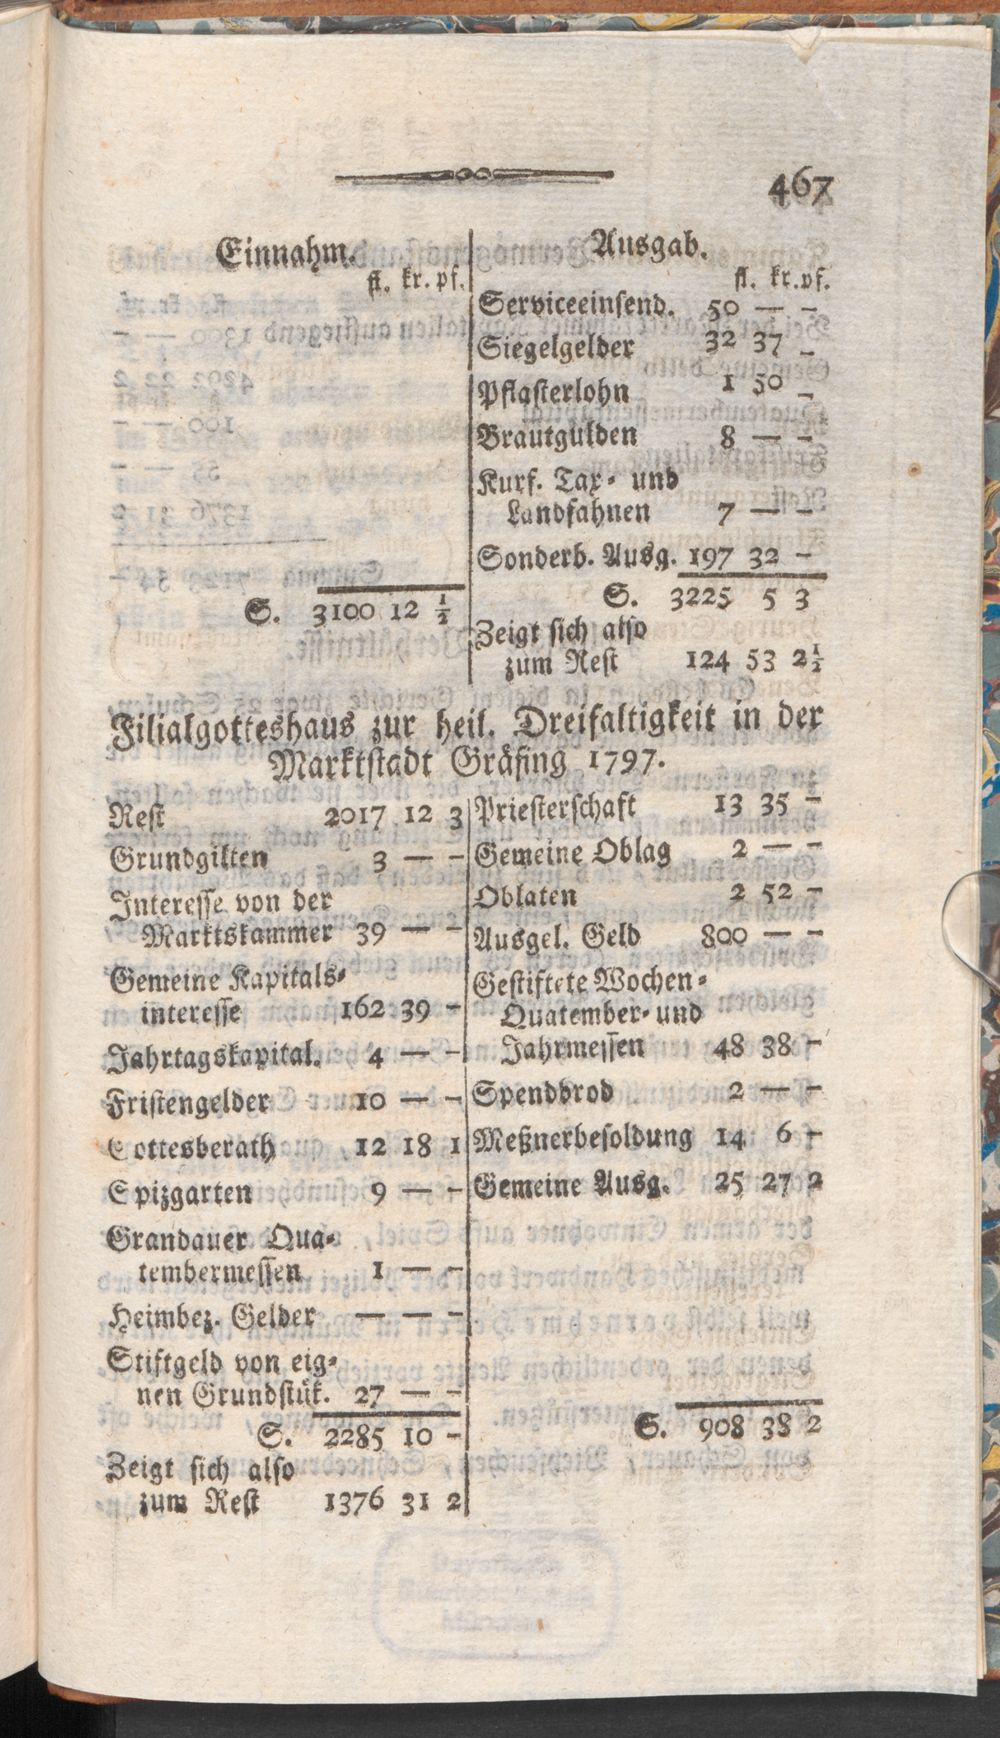 467
Einnahm.
fl. kr. pf.
S. 3100 12 ½
Ausgab.
fl. kr. pf.
Serviceeinsend. 50 — -
Siegelgelder 32 37 -
Pflasterlohn 1 50 -
Brautgulden 8 — -
Kurf. Tax- und
Landfahnen 7 — -
Sonderb. Ausg. 197 32 -
S. 3225 5 3
Zeigt sich also
zum Rest 124 53 2½
Filialgotteshaus zur heil. Dreifaltigkeit in der
Marktstadt Gräfing 1797.
Rest 2017 12 3
Grundgilten 3 — -
Interesse von der
Marktskammer 39 — -
Gemeine Kapitals-
interesse 162 39 -
Jahrtagskapital. 4 — -
Fristengelder 10 — -
Gottesberath 12 18 1
Spizgarten 9 — -
Grandauer Qua-
tembermessen 1 — -
Heimbez. Gelder — — -
Stiftgeld von eig-
nen Grundstük. 27 — -
S. 2285 10 -
Zeigt sich also
zum Rest 1376 31 2
Priesterschaft 13 35 -
Gemeine Oblag 2 — -
Oblaten 2 52 -
Ausgel. Geld 800 — -
Gestiftete Wochen-
Quatember- und
Jahrmessen 48 38 -
Spendbrod 2 — -
Meßnerbesoldung 14 6 -
Gemeine Ausg. 25 27 2
S. 908 38 2